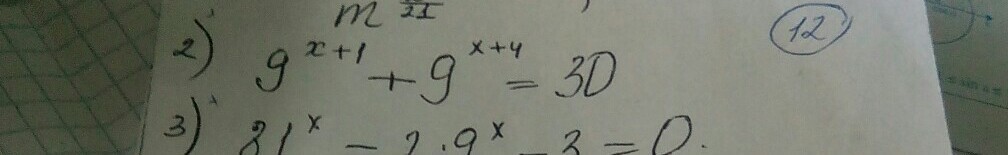 m 21
2) 9^{x+1} + 9^{x+4} = 30
12
3) 81^x - 2·9^x - 3 = 0.